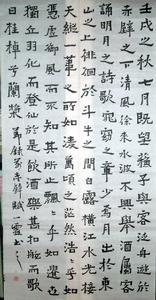 壬戌之秋七月既望蘇子與客泛舟遊於
赤壁之下清風徐來水波不興舉酒屬客
誦明月之詩歌窈窕之章少焉月出於東
山之上徘徊於斗牛之間白露橫江水光接
天縱一葦之所如凌萬頃之茫然浩浩乎如
憑虛御風而不知其所止飄飄乎如遺世
獨立羽化而登仙於是飲酒樂甚扣舷而歌
曰桂棹兮蘭槳